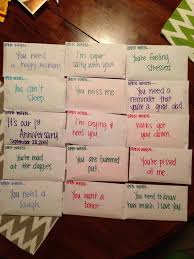 OPEN WHEN...
You need
a happy moment
OPEN WHEN...
I'm super
salty with you!
OPEN WHEN...
You're feeling
stressed
OPEN WHEN...
You can't
sleep
OPEN WHEN...
You miss me
OPEN WHEN...
You need a
reminder that
you're a great dad
OPEN WHEN...
It's our 1st
Anniversary
September 28, 2015
OPEN WHEN...
I'm acting &
need you
OPEN WHEN...
got you
down
OPEN WHEN...
You're mad
at the doggies
OPEN WHEN...
You are bummed
out
OPEN WHEN...
You're pissed
at me
OPEN WHEN...
You need a
laugh
OPEN WHEN...
You want a
OPEN WHEN...
You need to know
how much I love you